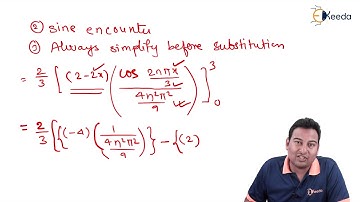 Ekeeda
② sine encounter
③ Always simplify before substitution
= 2/3 [ (2-2x) ( cos 2nπx/3 / 4n²π²/9 ) ]₀³
= 2/3 [ { (-4) ( 1 / 4n²π²/9 ) } - { (2)